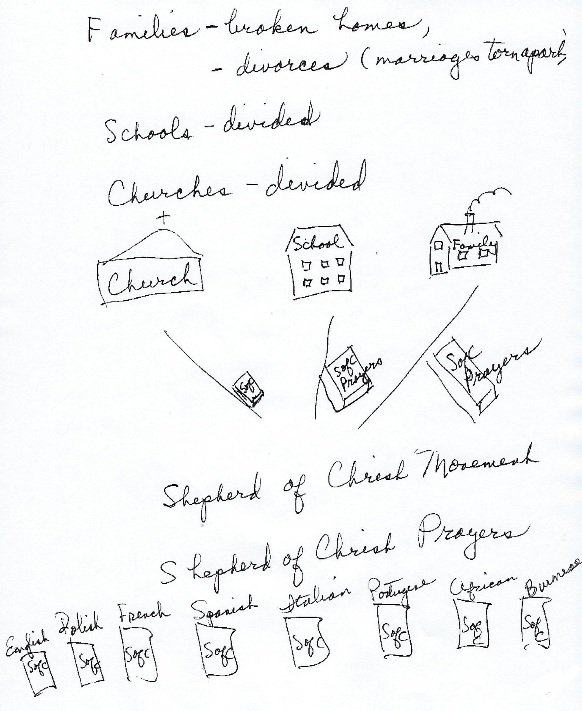 Families - broken homes,
- divorces (marriages torn apart)
Schools - divided
Churches - divided
Church
School
Family
SofC
SofC Prayers
SofC Prayers
Shepherd of Christ Movement
Shepherd of Christ Prayers
English Polish French Spanish Italian Portugese African Burmese
SofC SofC SofC SofC SofC SofC SofC SofC